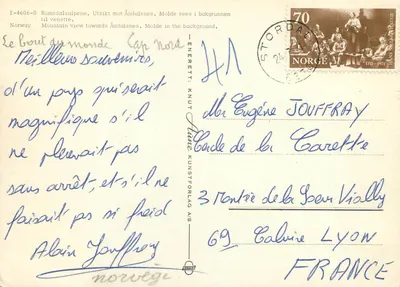 I-4604-9 Romsdalsalpene. Utsikt mot Åndalsnes. Molde sees i bakgrunnen
til venstre.
Norway Mountain View towards Åndalsnes. Molde in the background.
Le bout du monde Cap Nord
Meilleurs souvenirs,
d'un pays qui serait
magnifique s'il
ne pleuvait pas
sans arrêt, et s'il ne
faisait pas si froid
Alain Jouffray
norvège
ENERETT: KNUT Aune KUNSTFORLAG AS
70
NORGE
STORD
41
Mr Eugène JOUFFRAY
Cercle de la Carette
3 Montée de la Soeur Vially
69 Caluire LYON
FRANCE